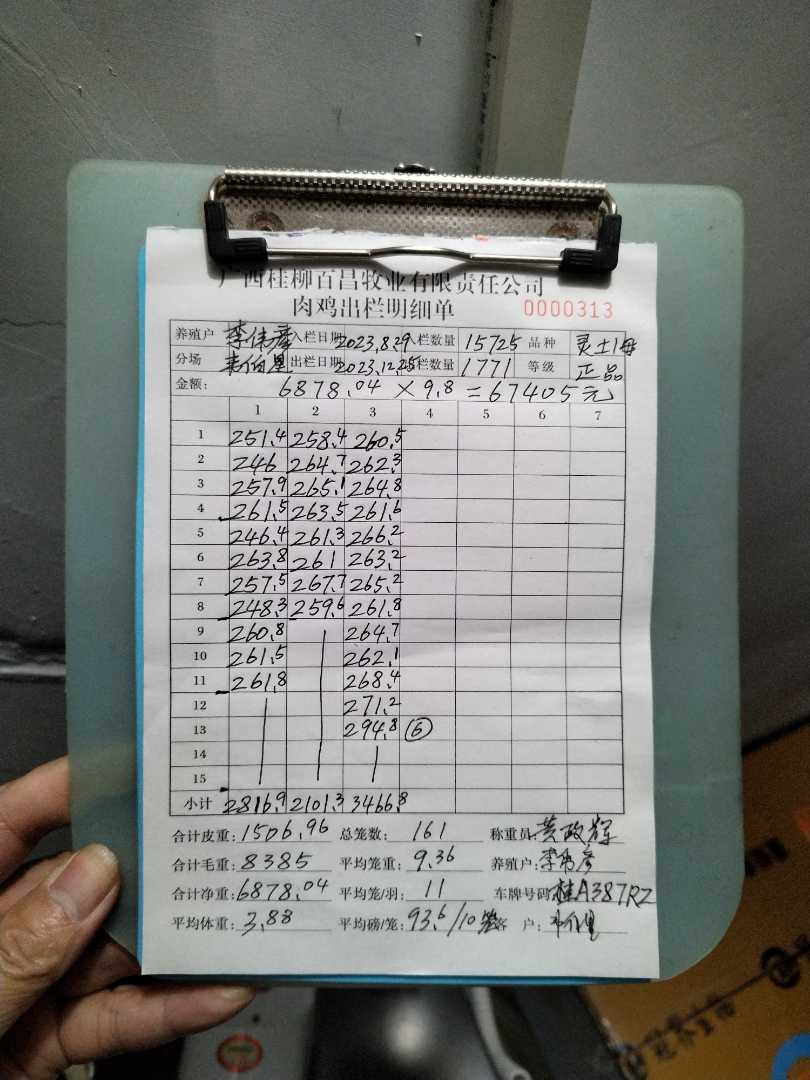 广西桂柳百昌牧业有限责任公司
肉鸡出栏明细单 0000313
养殖户 李伟彦 入栏日期 2023.8.29 入栏数量 15725 品种 灵土1母
分场 韦伯里 出栏日期 2023.12.25 出栏数量 1771 等级 正品
金额: 6878.04 × 9.8 = 67405元
1 2 3 4 5 6 7
1 251.4 258.4 260.5
2 246 264.7 262.3
3 257.9 265.1 264.8
4 261.5 263.5 261.6
5 246.4 261.3 266.2
6 263.8 261 263.2
7 257.5 267.7 265.2
8 248.3 259.6 261.8
9 260.8 264.7
10 261.5 262.1
11 261.8 268.4
12 271.2
13 294.8 ⑥
14
15
小计 2816.9 2101.3 3466.8
合计皮重: 1506.96 总笼数: 161 称重员: 黄政辉
合计毛重: 8385 平均笼重: 9.36 养殖户: 李伟彦
合计净重: 6878.04 平均笼/羽: 11 车牌号码: 桂A387RZ
平均体重: 3.88 平均磅/笼: 93.6/10笼 客 户: